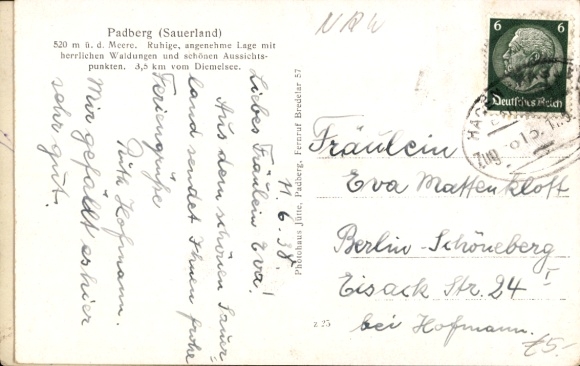 Padberg (Sauerland)
520 m ü. d. Meere. Ruhige, angenehme Lage mit
herrlichen Waldungen und schönen Aussichts-
punkten. 3,5 km vom Diemelsee.
NRW
11. 6. 38.
Liebes Fräulein Eva!
Aus dem schönen Sauer-
land sendet Ihnen frohe
Feriengrüße
Ruth Hofmann.
Mir gefällt es hier
sehr gut.
Photohaus Jütte, Padberg, Fernruf Bredelar 57
6 6
Deutsches Reich
Zug
Fräulein
Eva Mattenkloft
Berlin-Schöneberg
Eisack Str. 24 I
bei Hofmann.
z 25